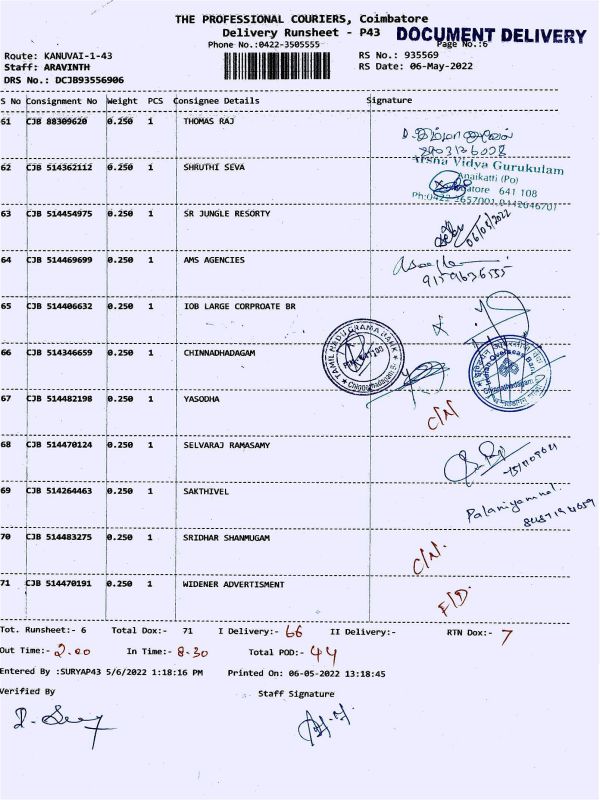 THE PROFESSIONAL COURIERS, Coimbatore
Delivery Runsheet - P43
DOCUMENT DELIVERY
Phone No.:0422-3505555
Page No.:6
Route: KANUVAI-1-43
RS No.: 935569
Staff: ARAVINTH
RS Date: 06-May-2022
DRS No.: DCJB93556906
S No Consignment No Weight PCS Consignee Details Signature
61 CJB 88309620 0.250 1 THOMAS RAJ
62 CJB 514362112 0.250 1 SHRUTHI SEVA
Arsha Vidya Gurukulam
Anaikatti (Po)
641 108
63 CJB 514454975 0.250 1 SR JUNGLE RESORTY
06/05/2022
64 CJB 514469699 0.250 1 AMS AGENCIES
65 CJB 514406632 0.250 1 IOB LARGE CORPROATE BR
66 CJB 514346659 0.250 1 CHINNADHADAGAM
TAMIL NADU GRAMA BANK
Indian Overseas Bank
67 CJB 514482198 0.250 1 YASODHA
C/N
68 CJB 514470124 0.250 1 SELVARAJ RAMASAMY
69 CJB 514264463 0.250 1 SAKTHIVEL
Palaniyammal
70 CJB 514483275 0.250 1 SRIDHAR SHANMUGAM
C/N.
71 CJB 514470191 0.250 1 WIDENER ADVERTISMENT
F/D.
Tot. Runsheet:- 6 Total Dox:- 71 I Delivery:- 66 II Delivery:- RTN Dox:- 7
Out Time:- 2.00 In Time:- 8.30 Total POD:- 44
Entered By :SURYAP43 5/6/2022 1:18:16 PM Printed On: 06-05-2022 13:18:45
Verified By Staff Signature